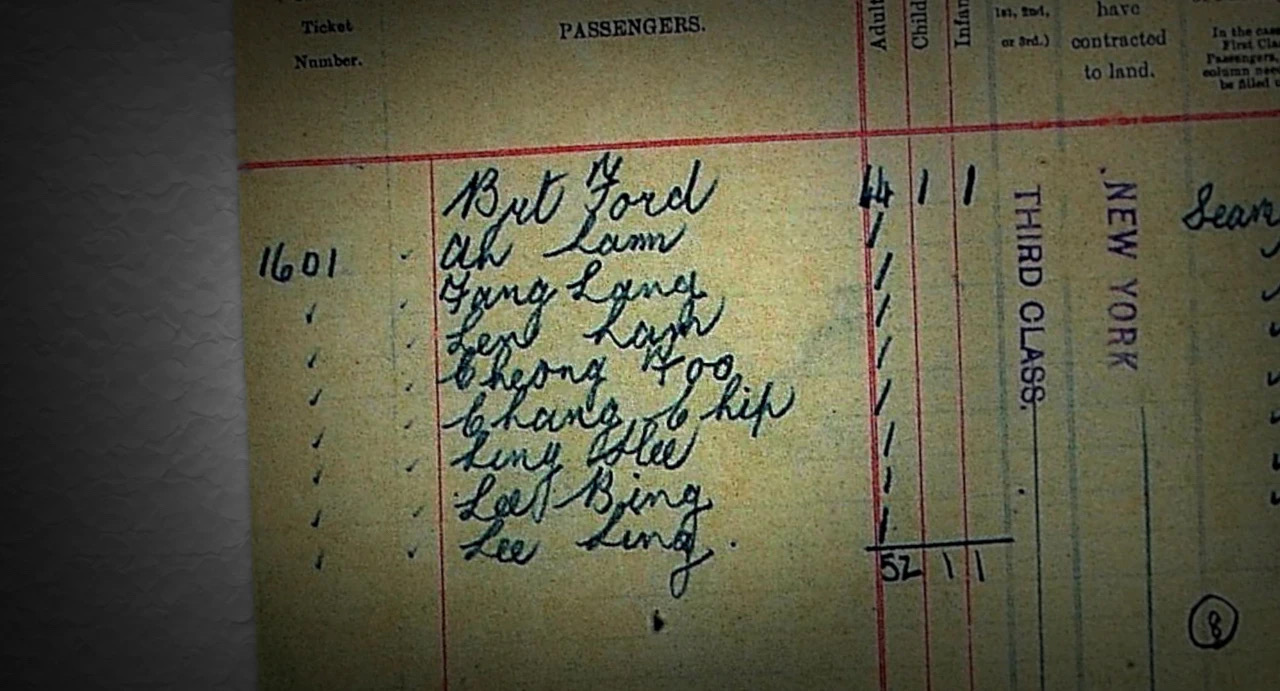 Ticket
Number.
PASSENGERS.
Adult
Child
Infan
1st, 2nd,
or 3rd.)
have
contracted
to land.
In the case
First Cla
Passengers,
column nee
be filled u
Brt Ford 44 1 1
1601 Ah Lam 1
Fang Lang 1
Len Lam 1
Cheong Foo 1
Chang Chip 1
Ling Hee 1
Lee Bing 1
Lee Ling. 1
52 1 1
THIRD CLASS.
NEW YORK
Seam
8